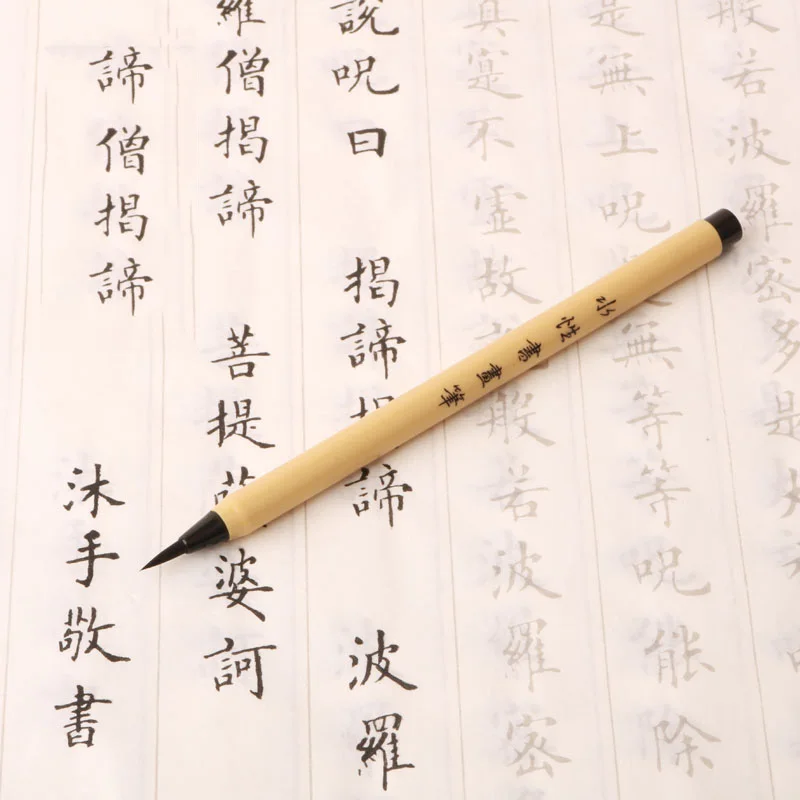 般若波羅密多是
是無上呪是無等等呪能除
真寔不虛故說般若波羅密
說呪曰 揭諦揭諦 波羅
羅僧揭諦 菩提薩婆訶
諦僧揭諦 沐手敬書
水性書畫筆